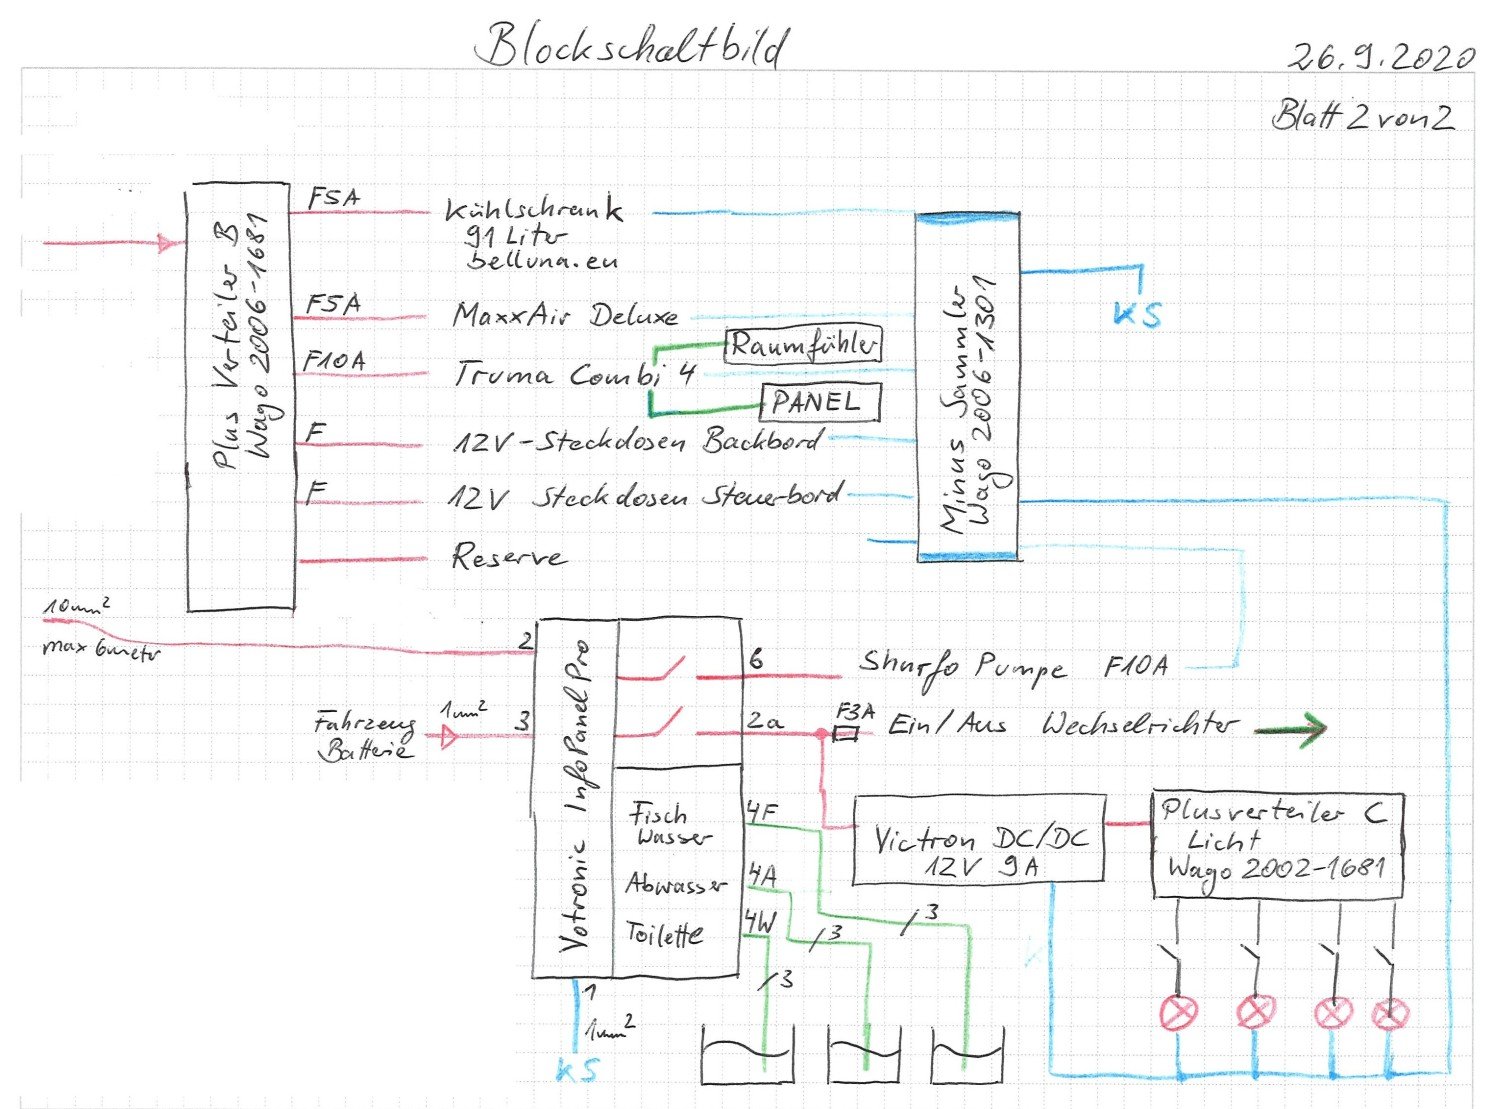 Blockschaltbild
26.9.2020
Blatt 2 von 2
Plus Verteiler B
Wago 2006-1681
F5A
Kühlschrank
91 Liter
belluna.eu
F5A
MaxxAir Deluxe
Raumfühler
F10A
Truma Combi 4
PANEL
F
12V-Steckdosen Backbord
F
12V Steckdosen Steuerbord
Reserve
Minus Sammler
Wago 2006-1301
KS
10mm²
max 6meter
2
Fahrzeug
Batterie
1mm²
3
Votronic InfoPanelPro
6
Shurfo Pumpe F10A
2a
F3A
Ein/Aus Wechselrichter
Fisch
Wasser
4F
Abwasser
4A
Toilette
4W
3
3
3
Victron DC/DC
12V 9A
Plusverteiler C
Licht
Wago 2002-1681
1
1mm²
KS